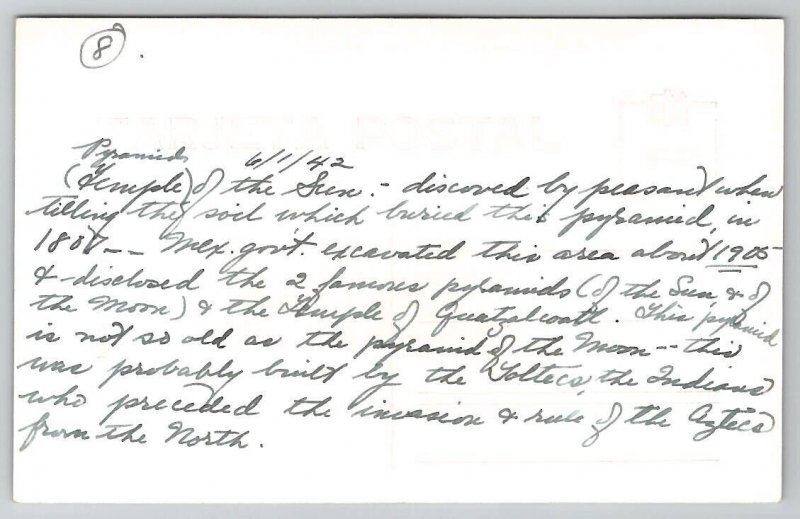 8
TARJETA POSTAL
Pyramids 6/1/42
(Temple) of the Sun :- discoved by peasant when
tilling the soil which buried this pyramid, in
1887 -- Mex. gov't. excavated this area about 1905
& disclosed the 2 famous pyramids (of the Sun & of
the Moon) & the Temple of Quatzlcoatl. This pyramid
is not so old as the pyramid of the Moon -- this
was probably built by the Toltecs, the Indians
who preceded the invasion & rule of the Aztecs
from the North.